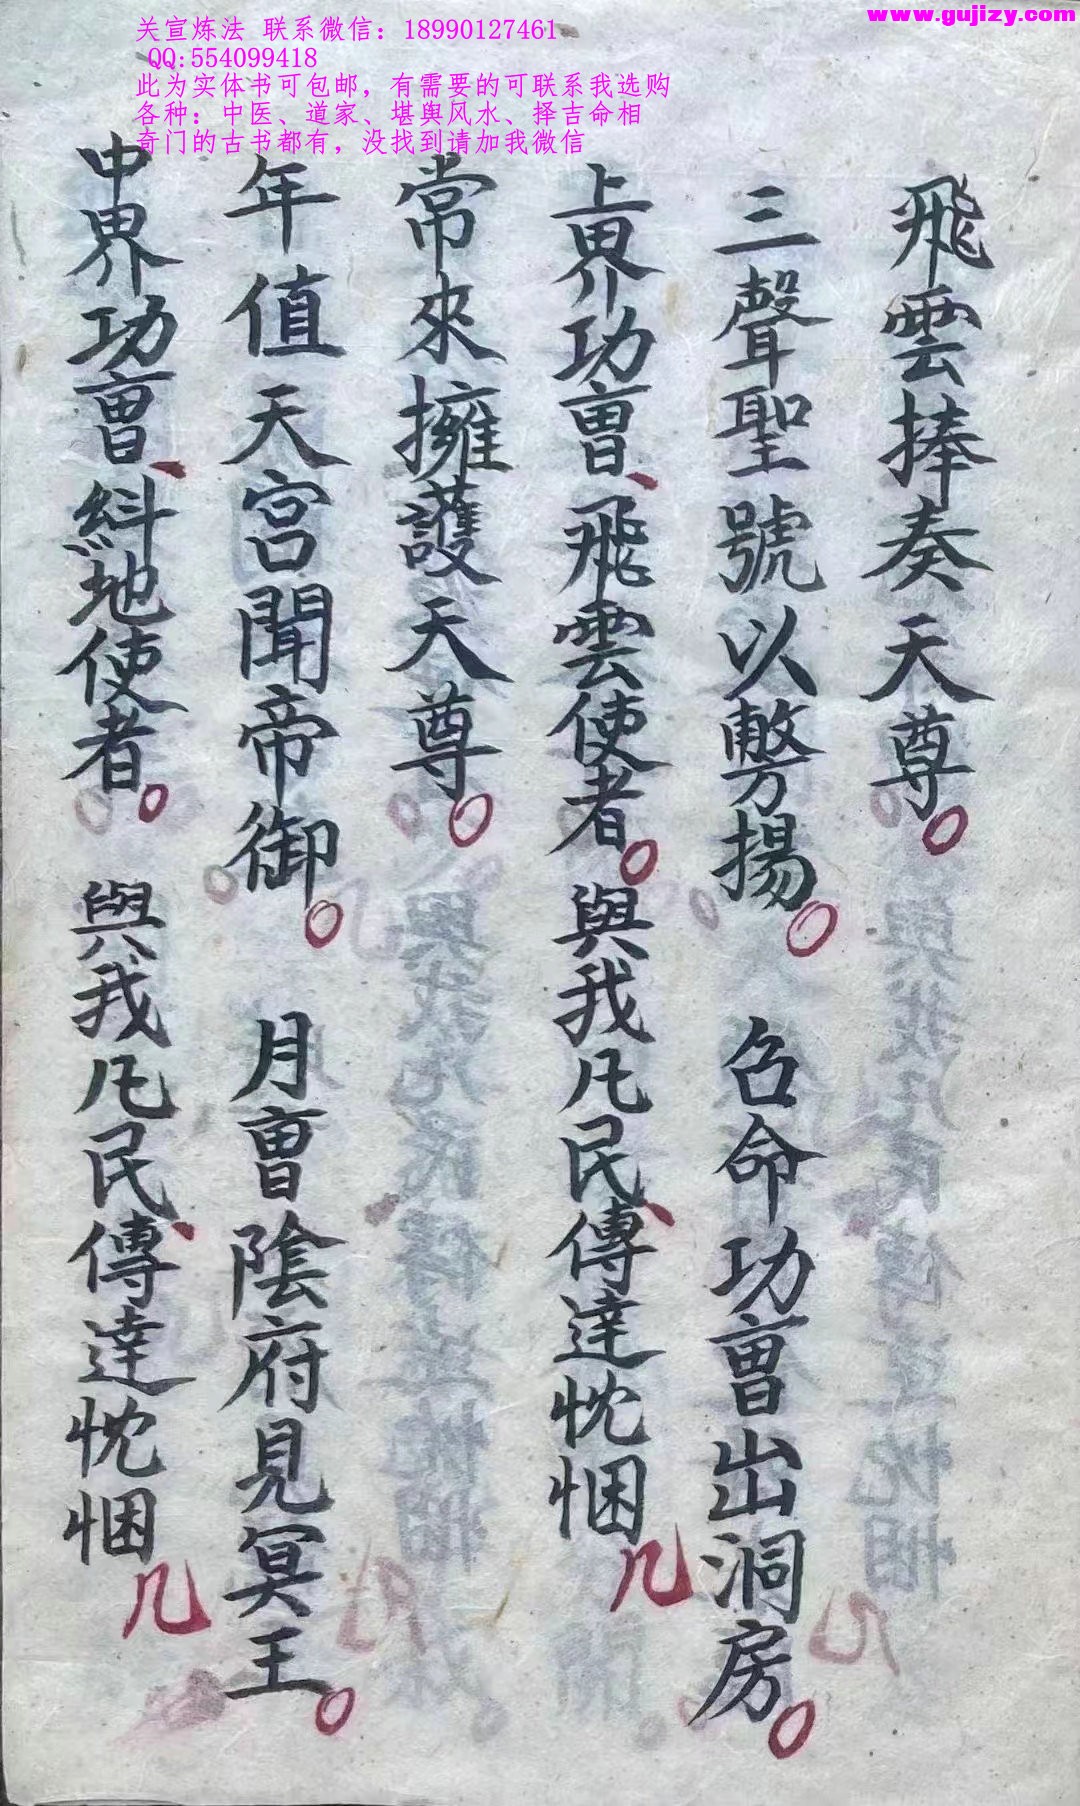 www.gujizy.com
关宣炼法 联系微信：18990127461
QQ:554099418
此为实体书可包邮，有需要的可联系我选购
各种：中医、道家、堪舆风水、择吉命相
奇门的古书都有，没找到请加我微信
飛雲捧奏天尊。
三聲聖號以揚。 召命功曹出洞房。
上界功曹、飛雲使者。 與我凡民、傳達忱悃
常來擁護天尊。
年值天宮聞帝御。 月曹陰府見冥王。
中界功曹、糾地使者。 與我凡民、傳達忱悃